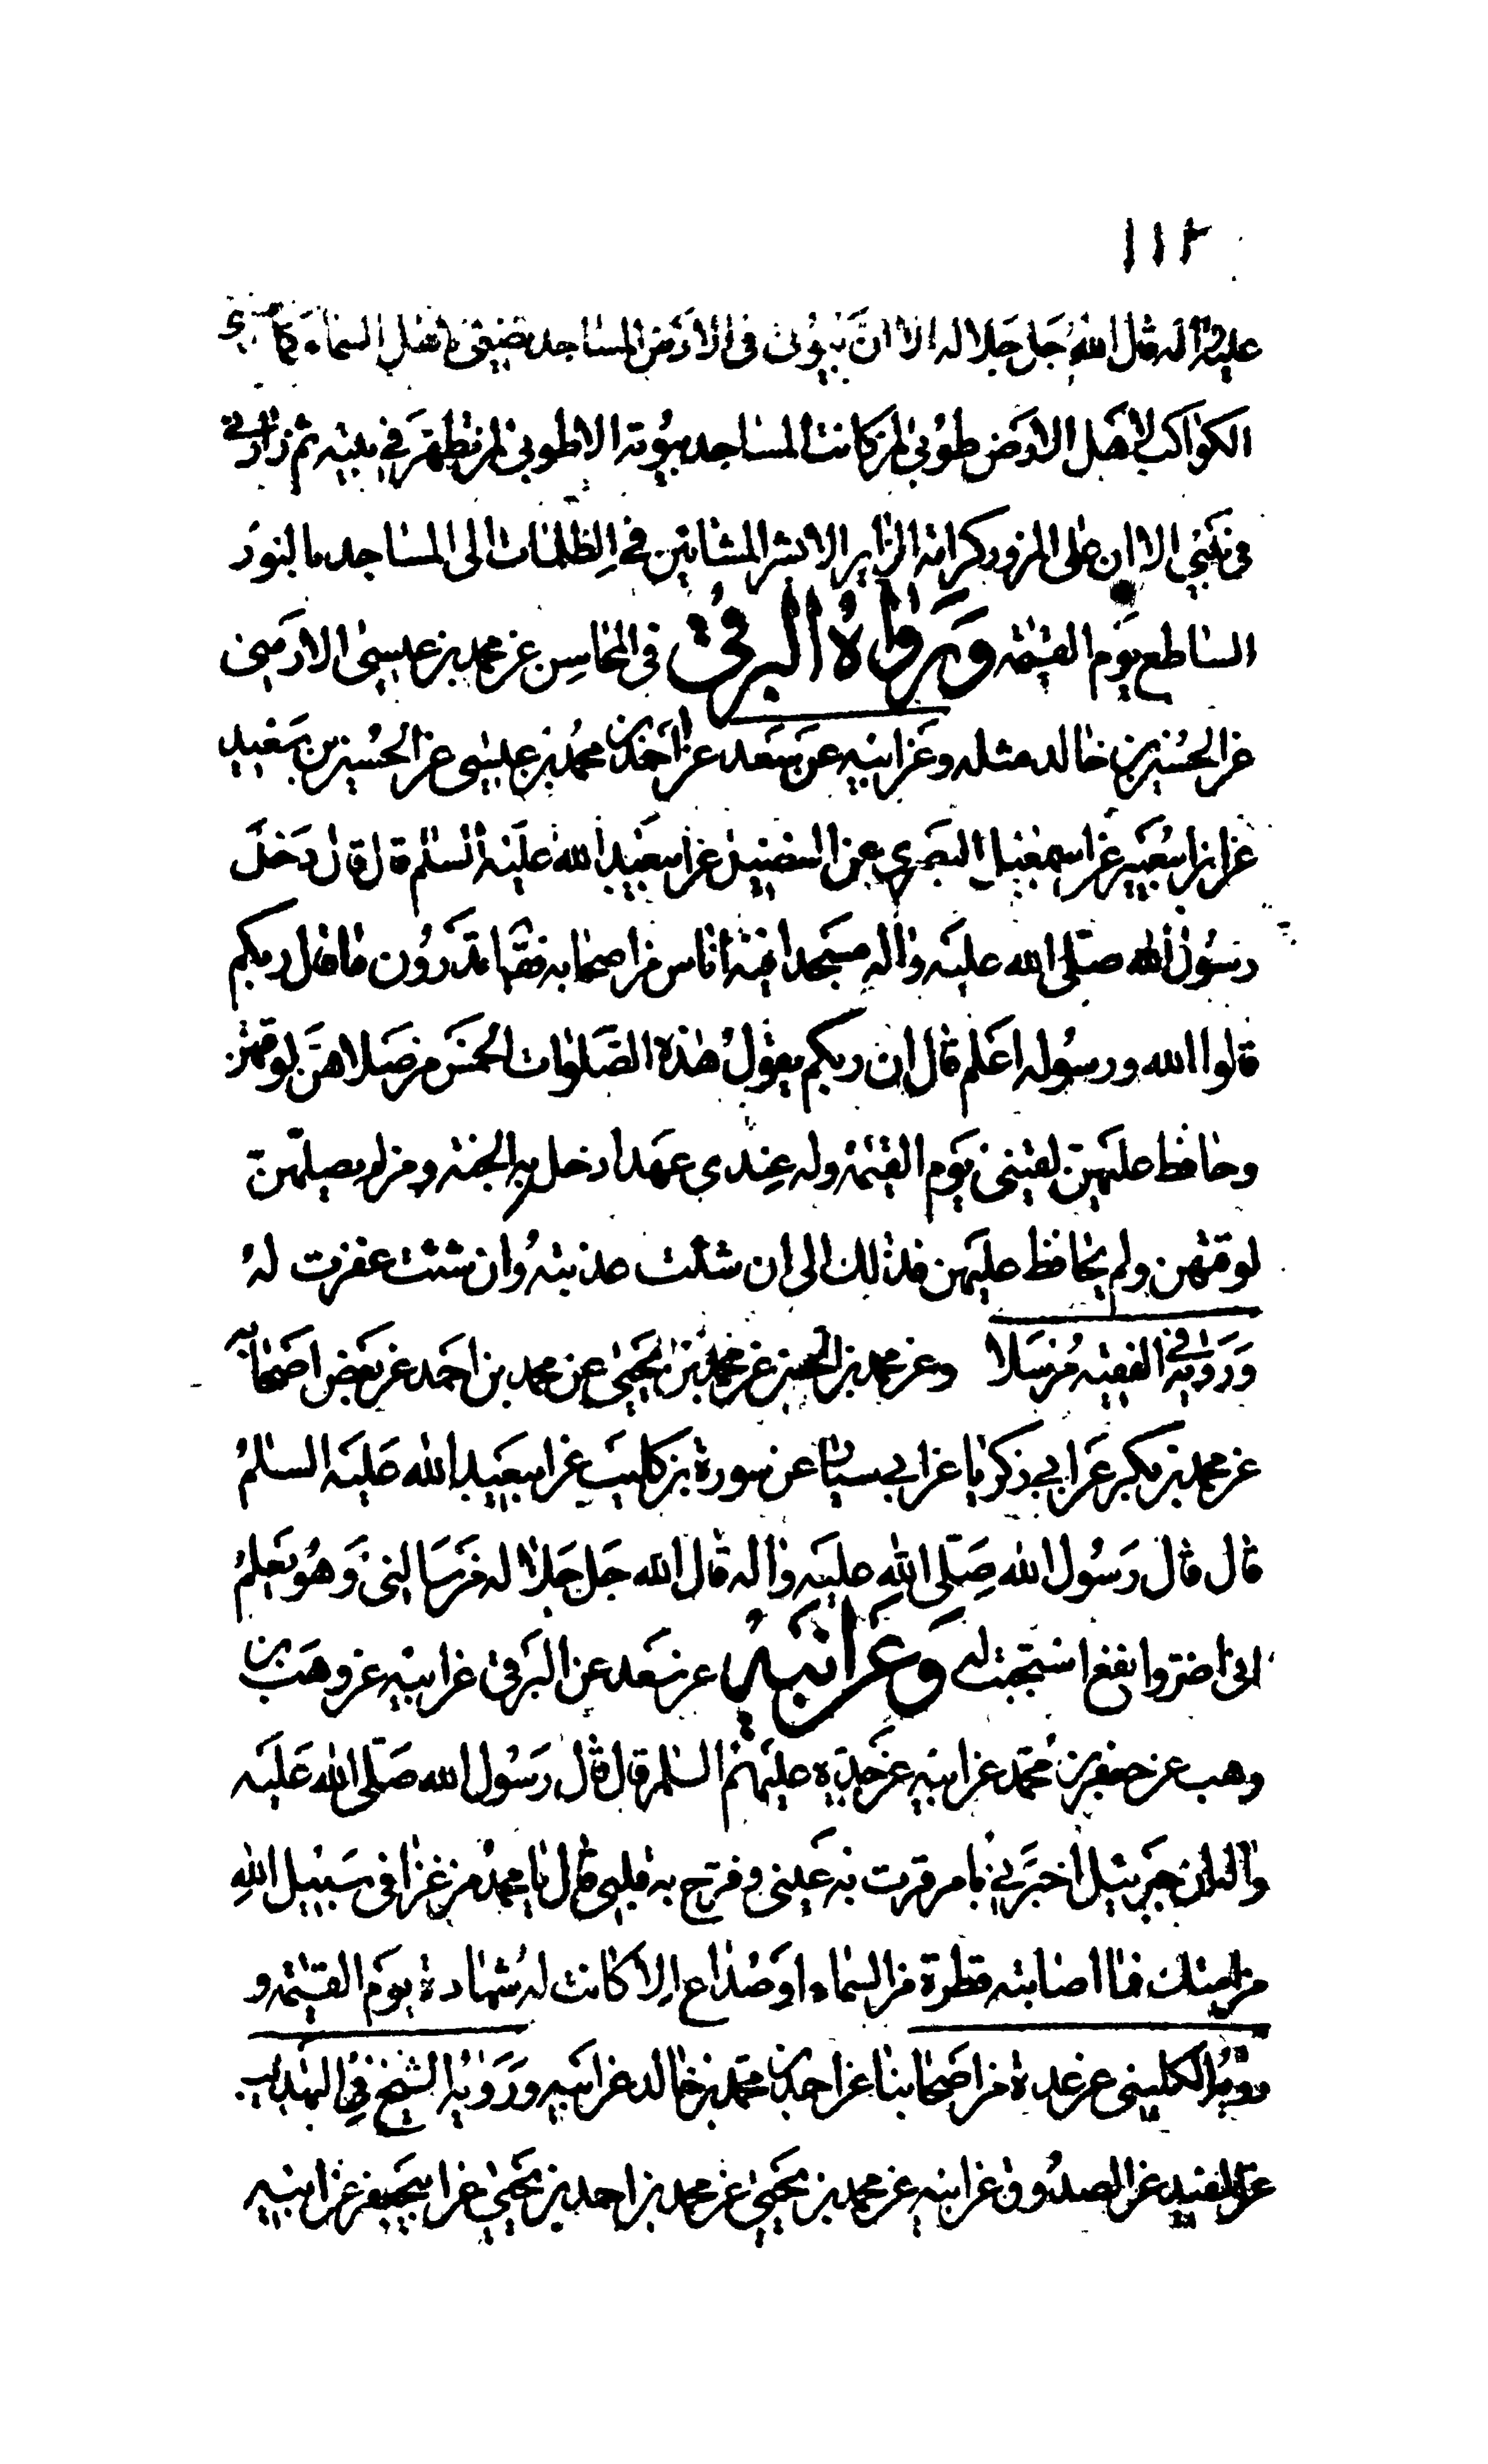 ١١٢
عليه واله قال الله جل جلاله الا ان بيوتى فى الارض المساجد تضيئ لاهل السماء كما تضيئ
الكواكب لاهل الارض طوبى لمن كانت المساجد بيوته الا طوبى لمن تطهر فى بيته ثم زارنى
فى بيتي الا ان على المزور كرامة الزاير الا بشر المشائين فى الظلمات الى المساجد بالنور
الساطع يوم القيمة ورواه البرقى فى المحاسن عن محمد بن عيسى الارمنى
عن الحسين بن خالد مثله وعن ابيه عن سعد عن احمد بن محمد بن عيسى عن الحسين بن سعيد
عن ابن ابى عمير عن اسمعيل البصرى عن الفضيل عن ابيعبد الله عليه السلم قال قال دخل
رسول الله صلى الله عليه واله مسجدا فيه اناس من اصحابه فقال تدرون ما قال ربكم
قالوا الله ورسوله اعلم قال ان ربكم يقول هذه الصلوات الخمس من صلاهن لوقتهن
وحافظ عليهن لقينى يوم القيمة وله عندى عهد ادخل به الجنة ومن لم يصلهن
لوقتهن ولم يحافظ عليهن فذلك الى ان شئت عذبته وان شئت غفرت له
ورواه فى الفقيه مرسلا وعن محمد بن الحسن عن محمد بن يحيى عن محمد بن احمد عن بعض اصحابه
عن محمد بن بكر عن ابي زكريا عن ابي سيار عن سورة بن كليب عن ابيعبد الله عليه السلم
قال قال رسول الله صلى الله عليه واله قال الله جل جلاله من سالنى وهو يعلم
انى اضر وانفع استجبت له وعن ابيه عن سعد عن البرقى عن ابيه عن وهب بن
وهب عن جعفر بن محمد عن ابيه عن جده عليهم السلم قال قال رسول الله صلى الله عليه
واله ان جبرئيل اخبرني بامر قرت به عينى وفرح به قلبى قال يا محمد من غزا فى سبيل الله
من امتك فما اصابته قطرة من السماء او صداع الا كانت له شهادة يوم القيمة و
رواه الكلينى عن عدة من اصحابنا عن احمد بن محمد بن خالد عن ابيه ورواه الشيخ فى التهذيب
عن المفيد عن الصدوق عن ابيه عن محمد بن يحيى عن محمد بن احمد بن يحيى عن ابيجعفر عن ابيه